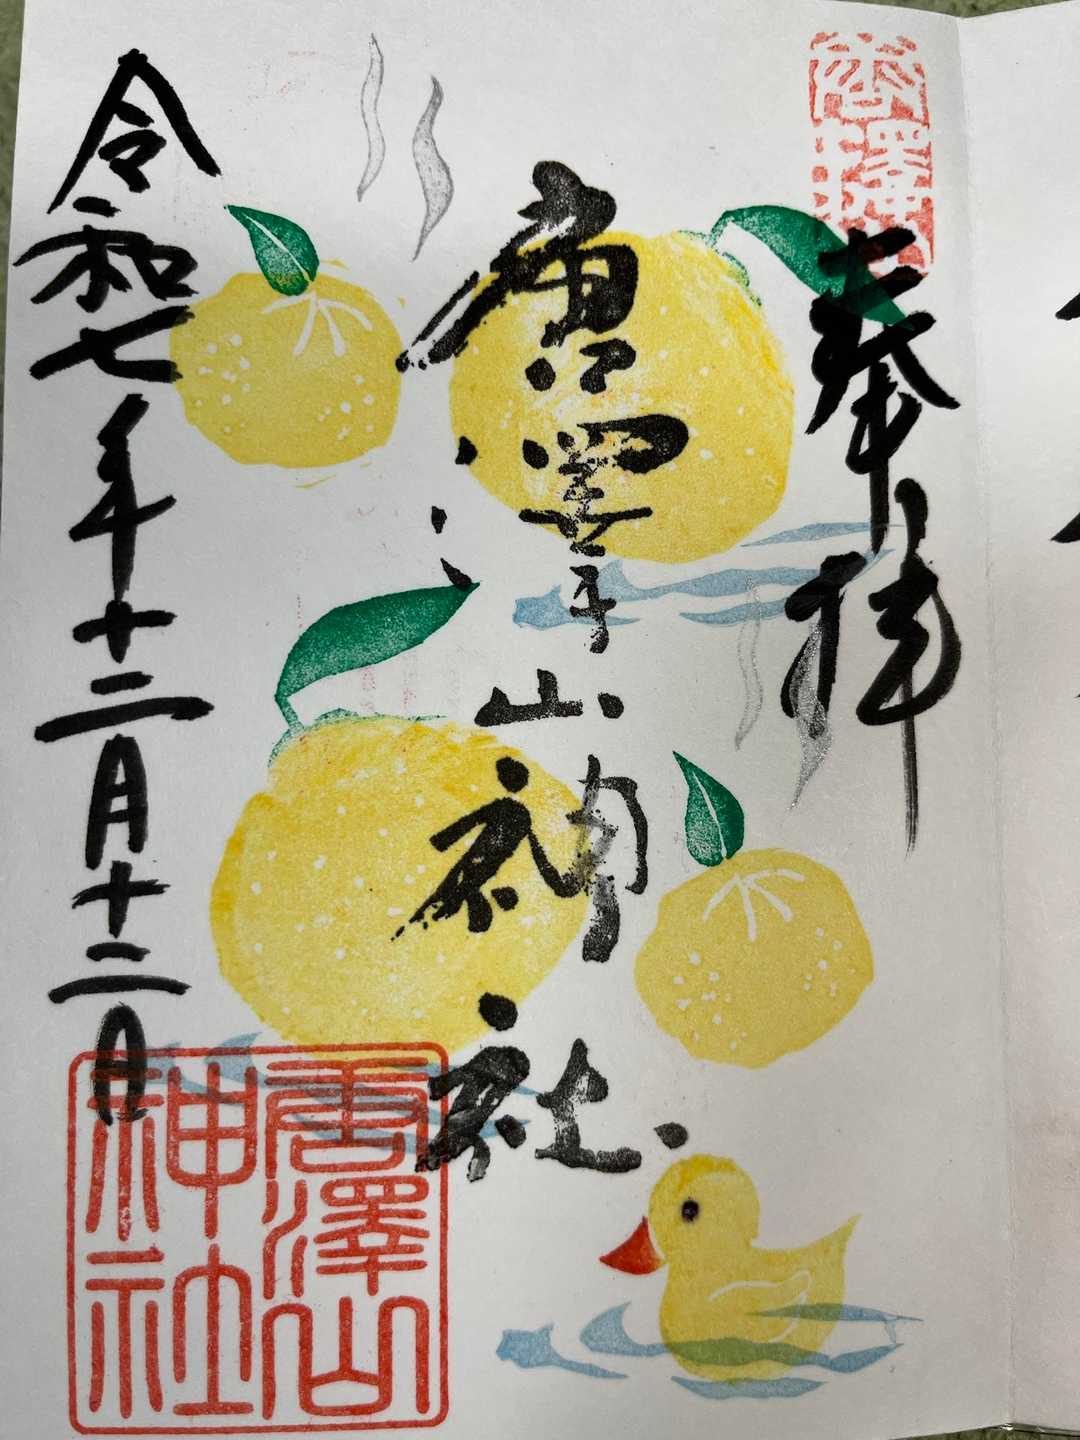 奉拝
唐澤山神社
令和七年十二月十二日
唐澤山
神社